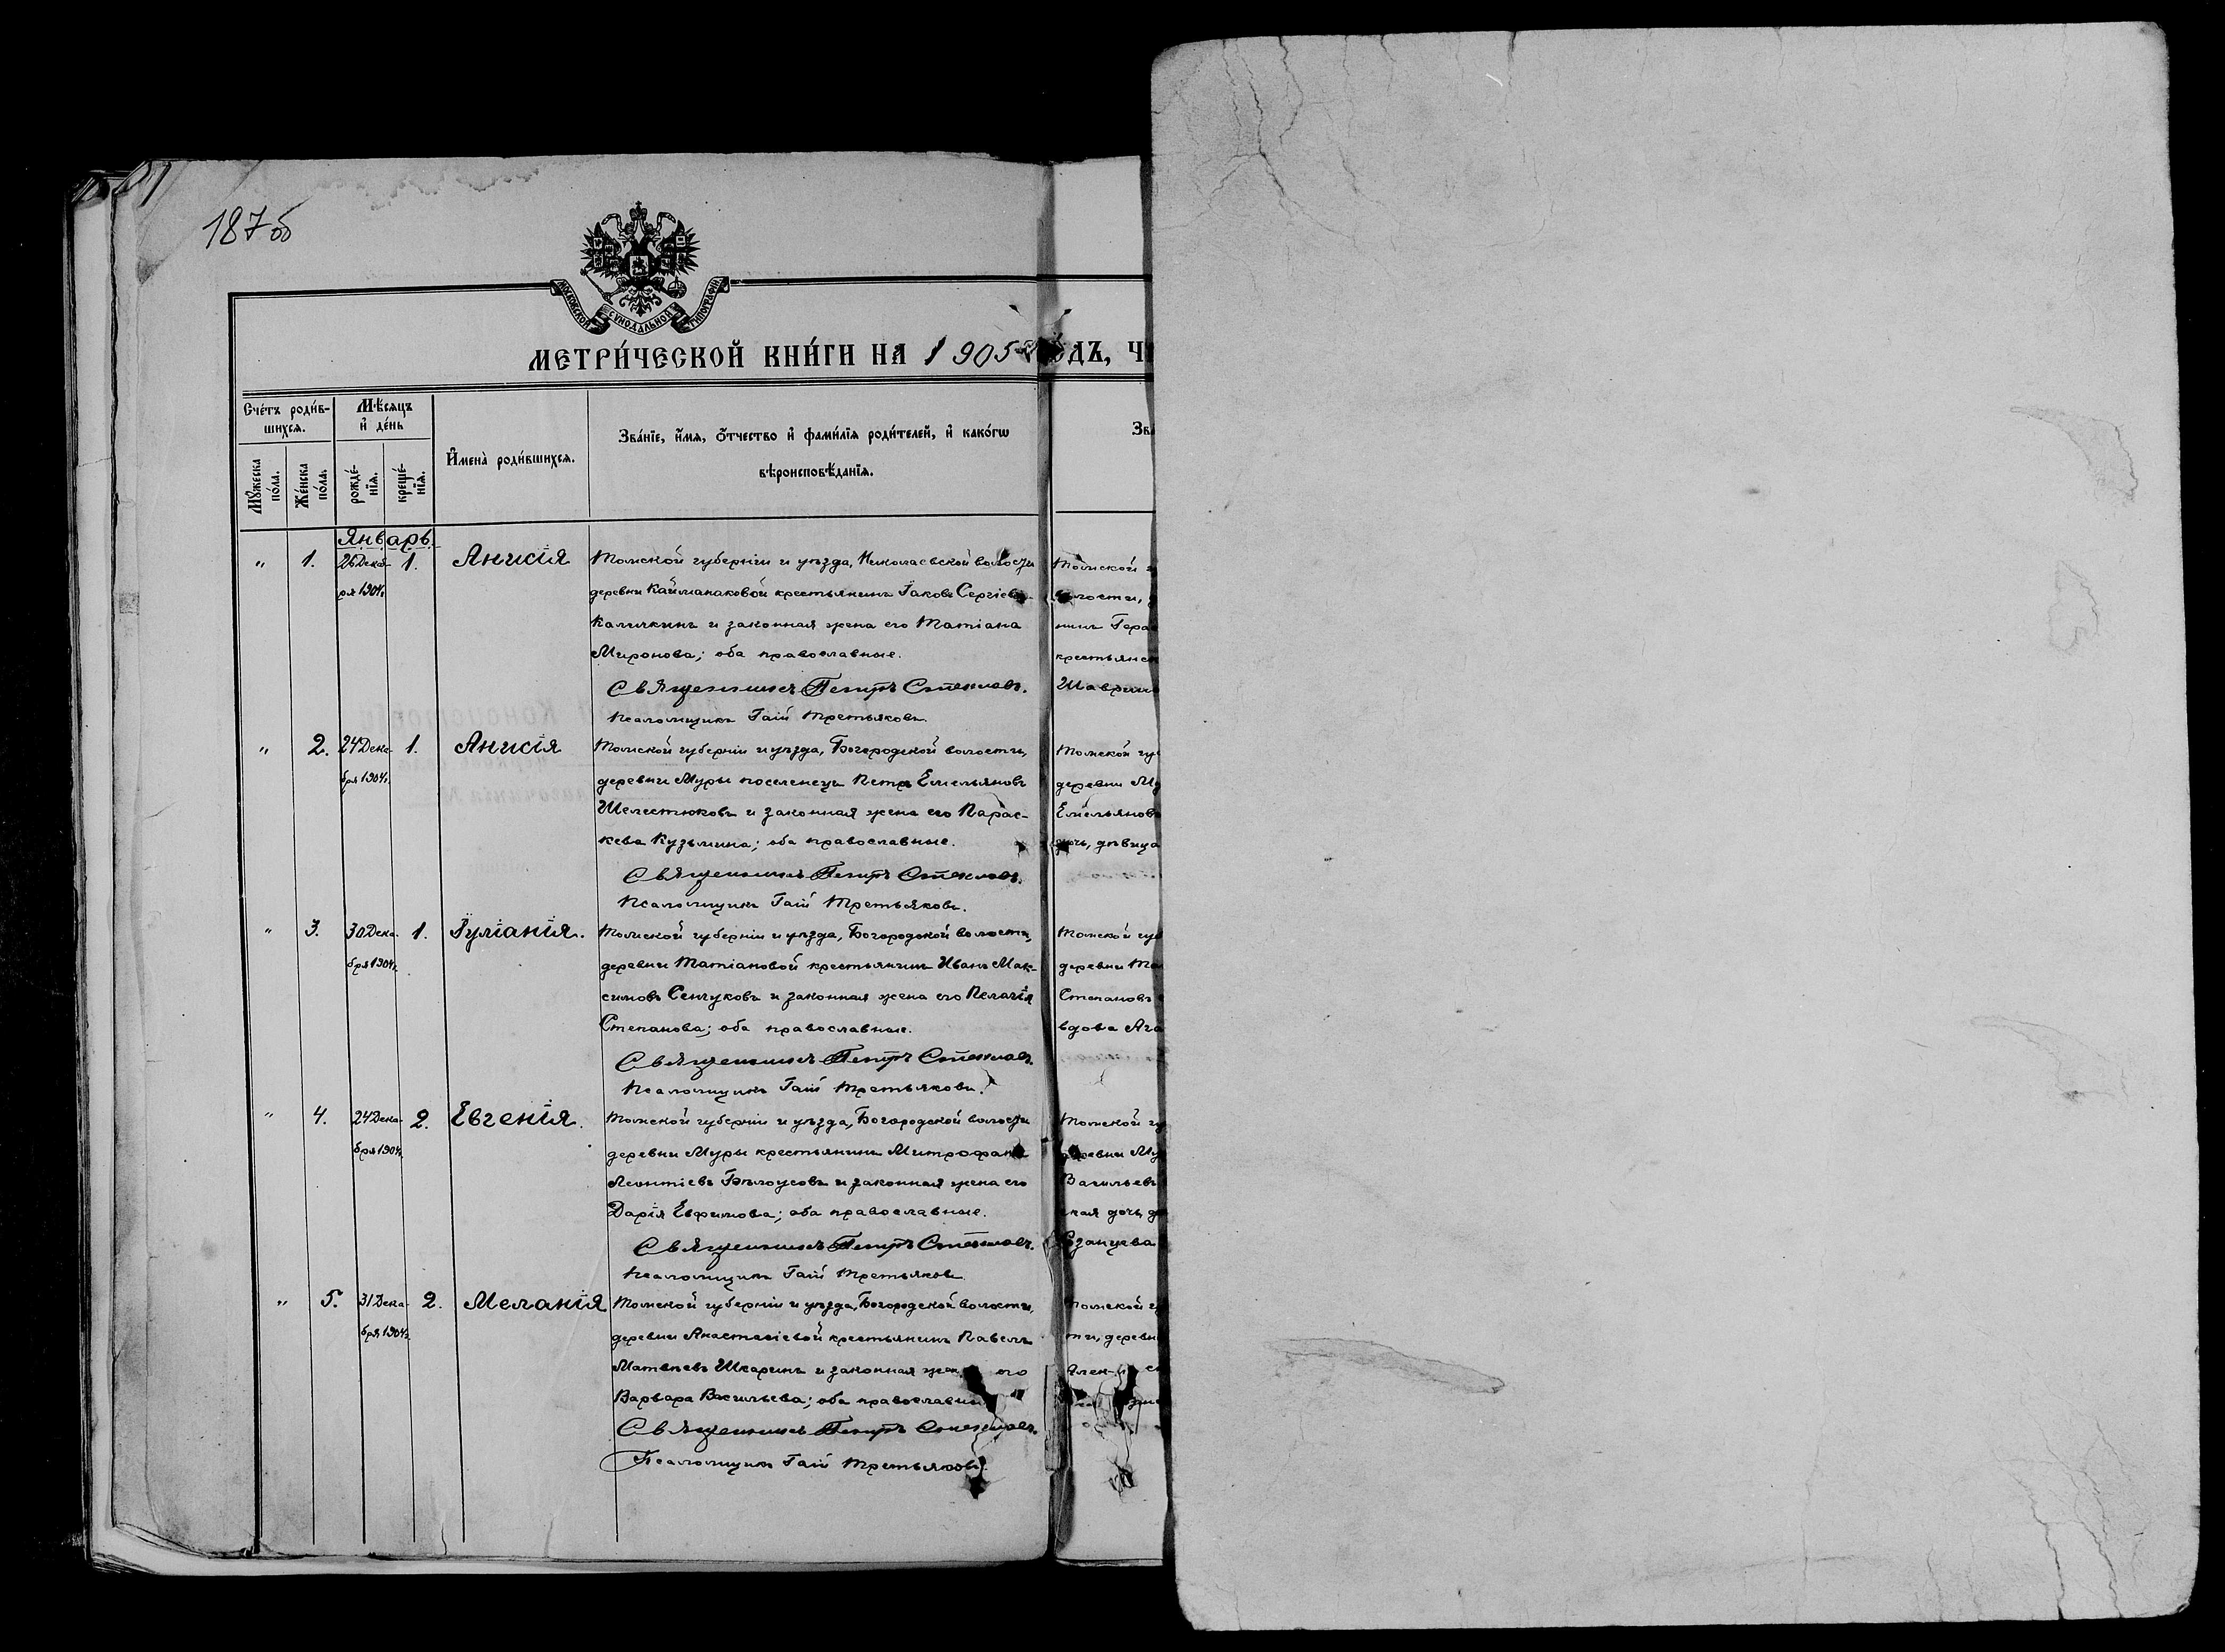 187об
МОСКОВСКОЙ СѴНОДАЛЬНОЙ ТИПОГРАФІИ
МЕТРИ́ЧЕСКОЙ КНИ́ГИ НА 1905 ГО́ДЪ, Ч
Сче́тъ роди́в-
шихся.
Мѣ́сяцъ
и҆ де́нь
Мꙋ́жеска по́ла.
Же́нска по́ла.
рожде́-
нїя.
креще́-
нїя.
И҆мена̀ роди́вшихся.
Зва́нїе, и҆́мя, ѻ҆́тчество и҆ фами́лїя роди́телей, и҆ како́гѡ
вѣроисповѣ́данїя.
Зва
Январь.
" 1. 26 Декаб- 1. Анисія Томской губерніи и уѣзда, Николаевской волости
ря 1904г. деревни Кайманаковой крестьянинъ Іаковъ Сергіевъ
Калмкинъ и законная жена его Татіана
Миронова; оба православные.
Священникъ Петръ Стекловъ.
Псаломщикъ Гаій Третьяковъ.
" 2. 24 Дека- 1. Анисія Томской губерніи и уѣзда, Богородской волости,
бря 1904г. деревни Муры поселенецъ Петръ Емельяновъ
Шелестюковъ и законная жена его Парас-
кева Кузьмина; оба православные.
Священникъ Петръ Стекловъ.
Псаломщикъ Гаій Третьяковъ.
" 3. 30 Дека- 1. Іуліанія. Томской губерніи и уѣзда, Богородской волости,
бря 1904г. деревни Татіановой крестьянинъ Иванъ Мак-
симовъ Сенчуковъ и законная жена его Пелагія
Степанова; оба православные.
Священникъ Петръ Стекловъ.
Псаломщикъ Гаій Третьяковъ.
" 4. 24 Дека- 2. Евгенія. Томской губерніи и уѣзда, Богородской волости
бря 1904г. деревни Муры крестьянинъ Митрофанъ
Леонтіевъ Бѣлоусовъ и законная жена его
Дарія Евфимова; оба православные.
Священникъ Петръ Стекловъ.
Псаломщикъ Гаій Третьяковъ
" 5. 31 Дека- 2. Меланія Томской губерніи и уѣзда, Богородской волости,
бря 1904г. деревни Анастасіевой крестьянинъ Павелъ
Матвѣевъ Шкаринъ и законная жена его
Варвара Васильева; оба православные
Священникъ Петръ Стекловъ.
Псаломщикъ Гаій Третьяковъ.
Томской г
волости,
нинъ Гера
крестьянск
Шаврин
Томской гу
деревни Му
Емельянов
дочь, дѣвица
Томской губ
деревни Та
Степановъ
вдова Ага
Томской гу
деревни Му
Васильевъ
ская дочь, д
Томской гу
ти, деревн